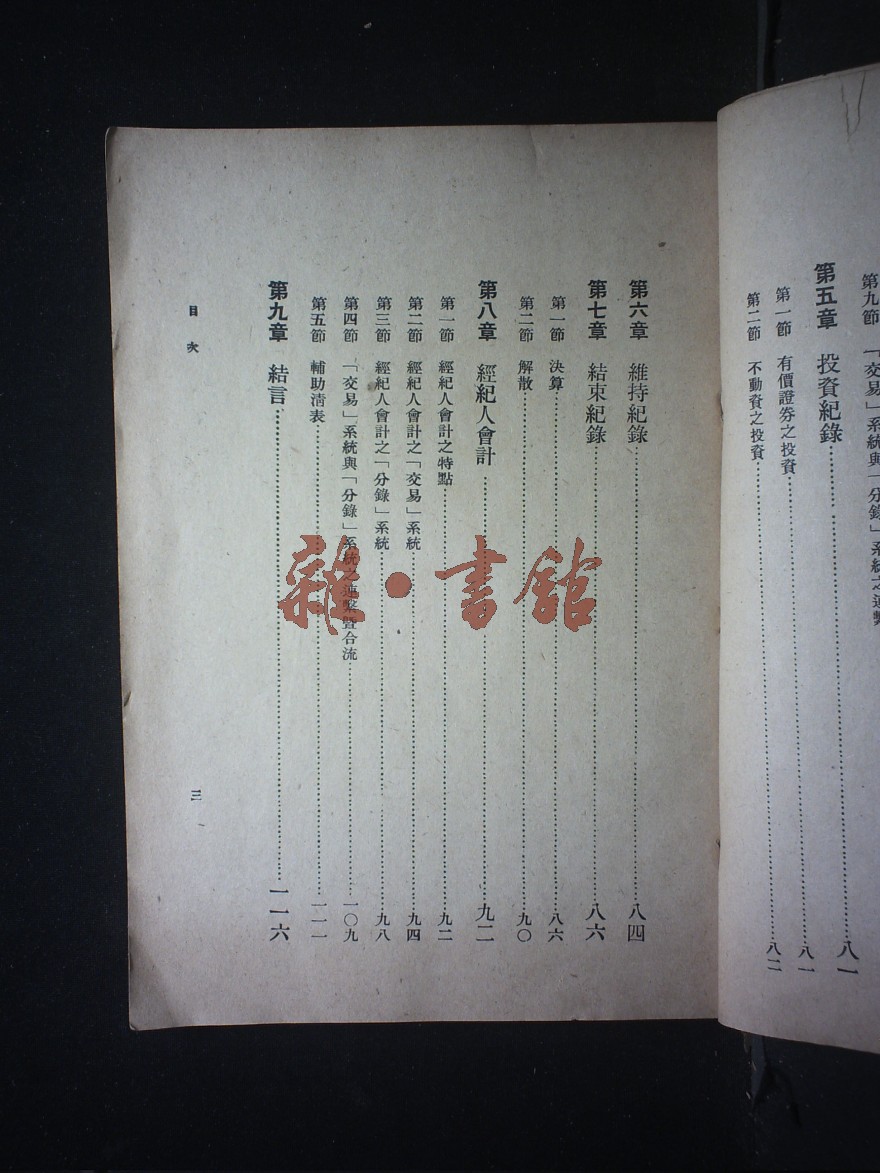 第九節 「交易」系統與「分錄」系統之連繫
第五章 投資紀錄……八一
第一節 有價證券之投資……八一
第二節 不動資之投資……八二
第六章 維持紀錄……八四
第七章 結束紀錄……八六
第一節 決算……八六
第二節 解散……九〇
第八章 經紀人會計……九二
第一節 經紀人會計之特點……九二
第二節 經紀人會計之「交易」系統……九四
第三節 經紀人會計之「分錄」系統……九八
第四節 「交易」系統與「分錄」系統之連繫暨合流……一〇九
第五節 輔助清表……一一一
第九章 結言……一一六
目次
三
雜·書館